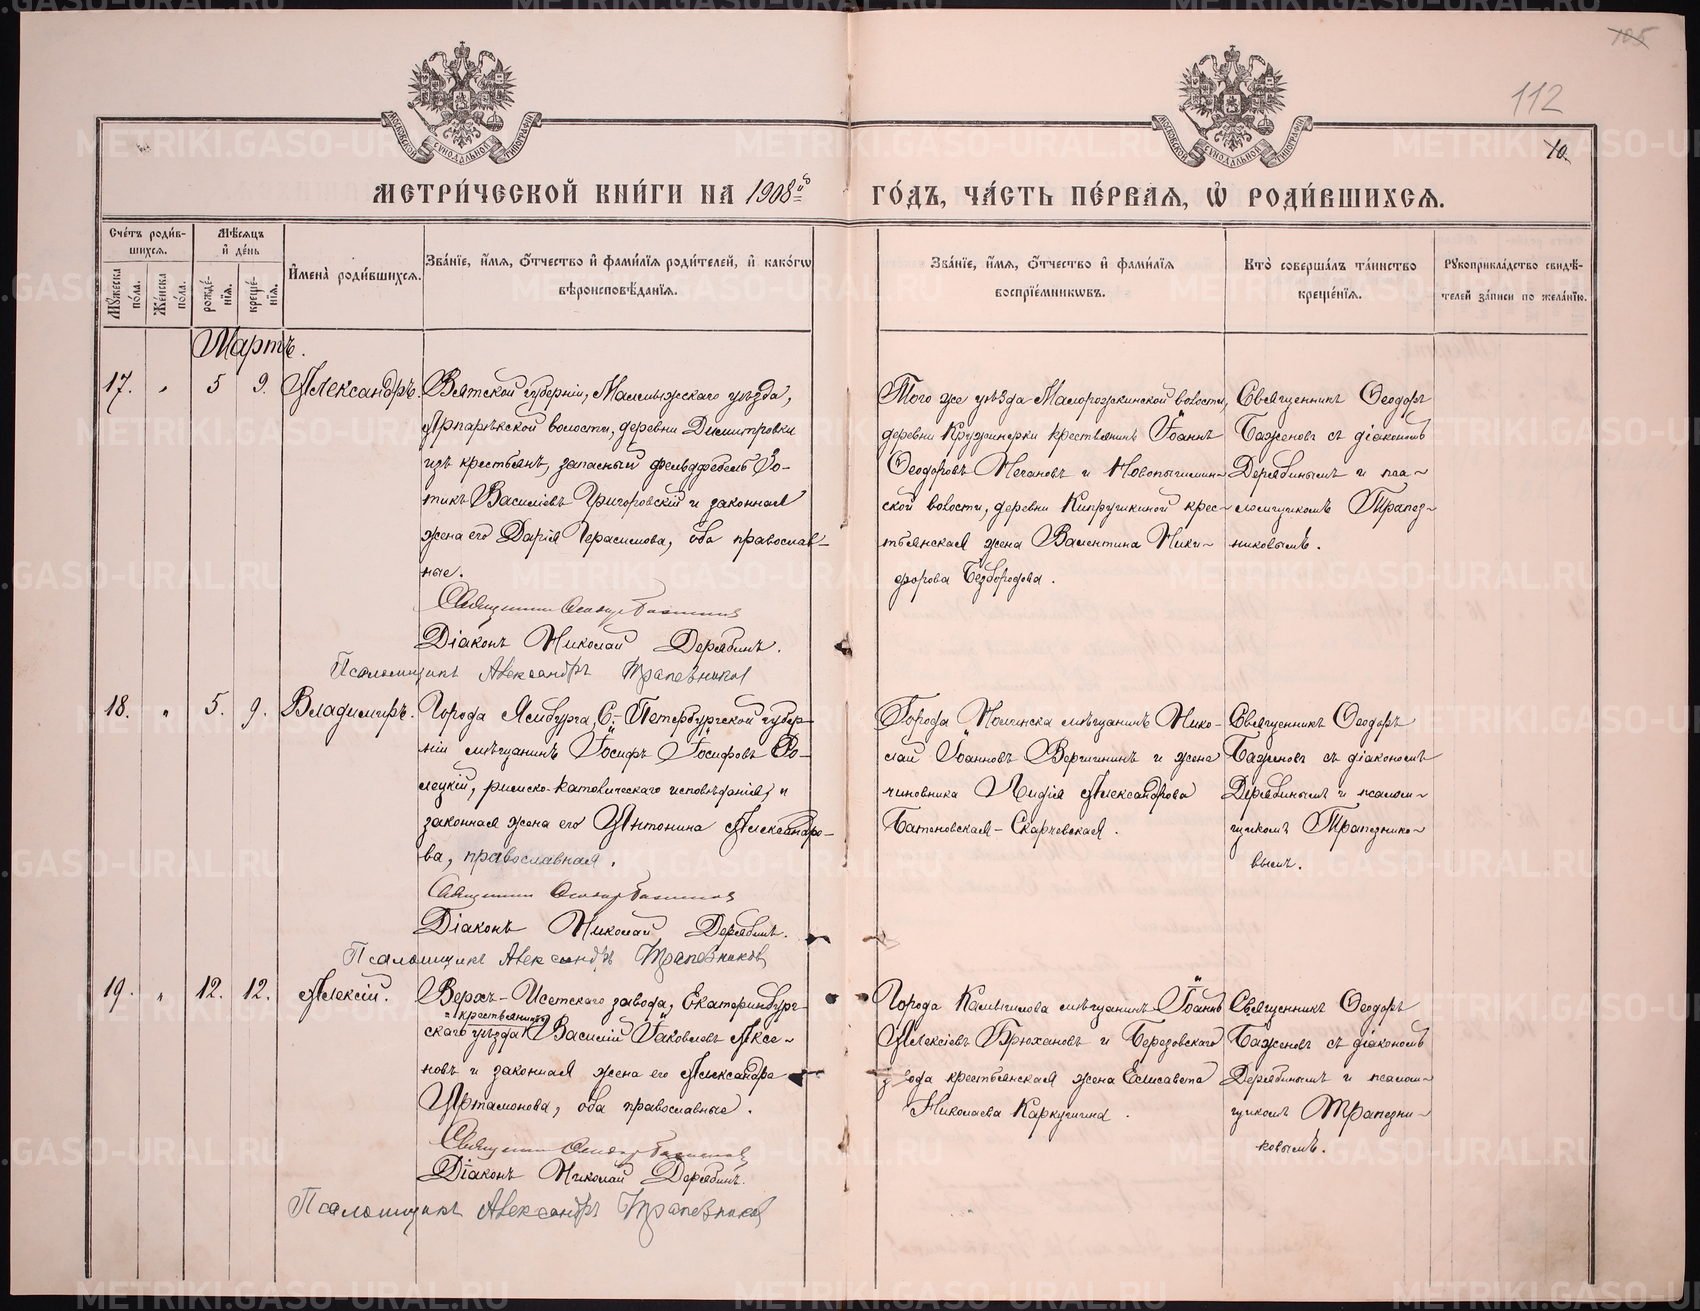 105
112
10.
МОСКОВСКОЙ СѴНОДАЛЬНОЙ ТИПОГРАФІИ
МОСКОВСКОЙ СѴНОДАЛЬНОЙ ТИПОГРАФІИ
МЕТРИ́ЧЕСКОЙ КНИ́ГИ НА 1908й
ГО́ДЪ, ЧА́СТЬ ПЕ́РВАЯ, Ѡ РОДИ́ВШИХСЯ.
Сче́тъ роди́в-
шихся.
Мꙋжеска по́ла.
Же́нска по́ла.
Мѣ́сяцъ
и҆ де́нь
рожде́-
нїя.
креще́-
нїя.
И҆мена̀ роди́вшихся.
Зва́нїе, и҆́мя, ѻ҆́тчество и҆ фами́лїя роди́телей, и҆ како́гѡ
вѣроисповѣ́данїя.
Зва́нїе, и҆́мя, ѻ҆́тчество и҆ фами́лїя
воспрїе́мникѡвъ.
Кто̀ соверша́лъ та́инство
креще́нїя.
Рꙋкоприкла́дство свидѣ́-
телей за́писи по жела́нїю.
Мартъ.
17. " 5 9. Александръ.
Вятской губерніи, Малмыжскаго уѣзда,
Арпарѣкской волости, деревни Димитровки
изъ крестьянъ, запасный фельдфебель Зо-
тикъ Василіевъ Григоровскій и законная
жена его Дарія Герасимова, оба православ-
ные.
Священникъ Ѳеодоръ Баженовъ
Діаконъ Николай Дерябинъ.
Псаломщикъ Александръ Трапезниковъ
Того же уѣзда Малорожкинской волости,
деревни Кружинерки крестьянинъ Іоаннъ
Ѳеодоровъ Нечановъ и Новопышмин-
ской волости, деревни Кипрушкиной крес-
тьянская жена Валентина Ники-
форова Безбородова.
Священникъ Ѳеодоръ
Баженовъ съ діакономъ
Дерябинымъ и пса-
ломщикомъ Трапез-
никовымъ.
18. " 5. 9. Владимиръ.
Города Ямбурга, С.-Петербургской губер-
ніи мѣщанинъ Іосифъ Іосифовъ
лецкій, римско-католическаго исповѣданія, и
законная жена его Антонина Александро-
ва, православная.
Священникъ Ѳеодоръ Баженовъ
Діаконъ Николай Дерябинъ.
Псаломщикъ Александръ Трапезниковъ
Города Нолинска мѣщанинъ Нико-
лай Іоанновъ Вершининъ и жена
чиновника Лидія Александрова
Батеновская-Скарчевская.
Священникъ Ѳеодоръ
Баженовъ съ діакономъ
Дерябинымъ и псалом-
щикомъ Трапезнико-
вымъ.
19. " 12. 12. Алексій.
Верхъ-Исетскаго завода, Екатеринбург-
крестьянинъ
скаго уѣзда Василій Іаковлевъ Аксе-
новъ и законная жена его Александра
Артамонова, оба православные.
Священникъ Ѳеодоръ Баженовъ
Діаконъ Николай Дерябинъ.
Псаломщикъ Александръ Трапезниковъ
Города Камышлова мѣщанинъ Іоаннъ
Алексіевъ Брюхановъ и Березовскаго
завода крестьянская жена Елисавета
Николаева Каркушина.
Священникъ Ѳеодоръ
Баженовъ съ діакономъ
Дерябинымъ и псалом-
щикомъ Трапезни-
ковымъ.
METRIKI.GASO-URAL.RU